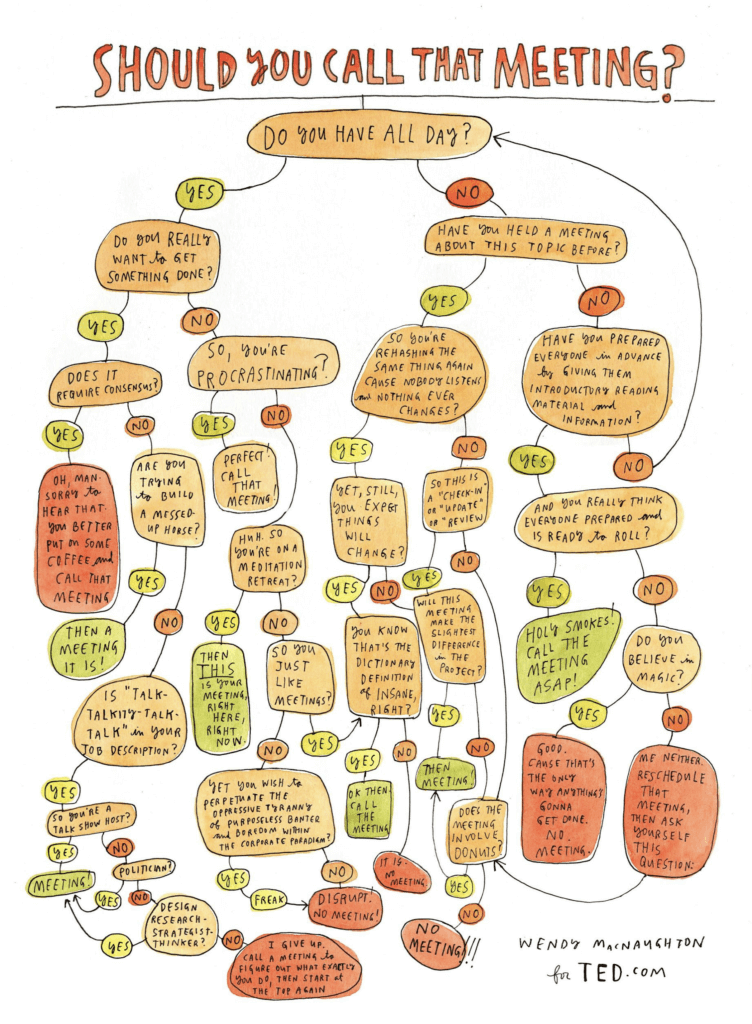 SHOULD YOU CALL THAT MEETING?
DO YOU HAVE ALL DAY?
YES
NO
DO YOU REALLY
WANT to GET
SOMETHING DONE?
HAVE YOU HELD A MEETING
ABOUT THIS TOPIC BEFORE?
YES
NO
YES
NO
DOES IT
REQUIRE CONSENSUS?
SO, YOU'RE
PROCRASTINATING?
SO YOU'RE
REHASHING THE
SAME THING AGAIN
CAUSE NOBODY LISTENS
and NOTHING EVER
CHANGES?
HAVE YOU PREPARED
EVERYONE in ADVANCE
by GIVING THEM
INTRODUCTORY READING
MATERIAL and
INFORMATION?
YES
NO
YES
NO
YES
NO
YES
NO
OH, MAN.
SORRY to
HEAR THAT.
YOU BETTER
PUT ON SOME
COFFEE and
CALL THAT
MEETING
ARE YOU
TRYING
to BUILD
A MESSED-
UP HORSE?
PERFECT!
CALL
THAT
MEETING!
YET, STILL,
YOU EXPECT
THINGS
WILL
CHANGE?
SO THIS IS
A "CHECK-IN"
or "UPDATE"
or "REVIEW
AND YOU REALLY THINK
EVERYONE PREPARED and
IS READY to ROLL?
YES
NO
HUH. SO
YOU'RE ON A
MEDITATION
RETREAT?
YES
NO
YES
NO
YES
NO
THEN A
MEETING
IT IS!
YES
NO
YOU KNOW
THAT'S THE
DICTIONARY
DEFINITION
of INSANE,
RIGHT?
WILL THIS
MEETING
MAKE THE
SLIGHTEST
DIFFERENCE
in THE
PROJECT?
HOLY SMOKES!
CALL THE
MEETING
ASAP!
DO YOU
BELIEVE in
MAGIC?
IS "TALK-
TALKITY-TALK-
TALK" in YOUR
JOB DESCRIPTION?
THEN
THIS
IS YOUR
MEETING,
RIGHT
HERE,
RIGHT
NOW.
SO YOU
JUST
LIKE
MEETINGS?
YES
NO
NO
YES
YES
NO
YES
NO
YES
SO YOU'RE A
TALK SHOW HOST?
YET YOU WISH to
PERPETUATE THE
OPPRESSIVE TYRANNY
of PURPOSELESS BANTER
and BOREDOM WITHIN
THE CORPORATE PARADIGM?
OK THEN.
CALL
THE
MEETING
THEN
MEETING!
DOES THE
MEETING
INVOLVE
DONUTS?
GOOD.
CAUSE THAT'S
THE ONLY
WAY ANYTHING'S
GONNA
GET DONE.
NO
MEETING.
ME NEITHER.
RESCHEDULE
THAT
MEETING,
THEN ASK
YOURSELF
THIS
QUESTION:
YES
NO
MEETING!
POLITICIAN?
YES
NO
YES
FREAK
NO
DISRUPT!
NO MEETING!
IT IS.
NO
MEETING
YES
NO
NO
MEETING!!!
DESIGN
RESEARCH-
STRATEGIST-
THINKER?
YES
NO
I GIVE UP.
CALL A MEETING to
FIGURE OUT WHAT EXACTLY
YOU DO, THEN START at
THE TOP AGAIN
WENDY MACNAUGHTON
for TED.COM